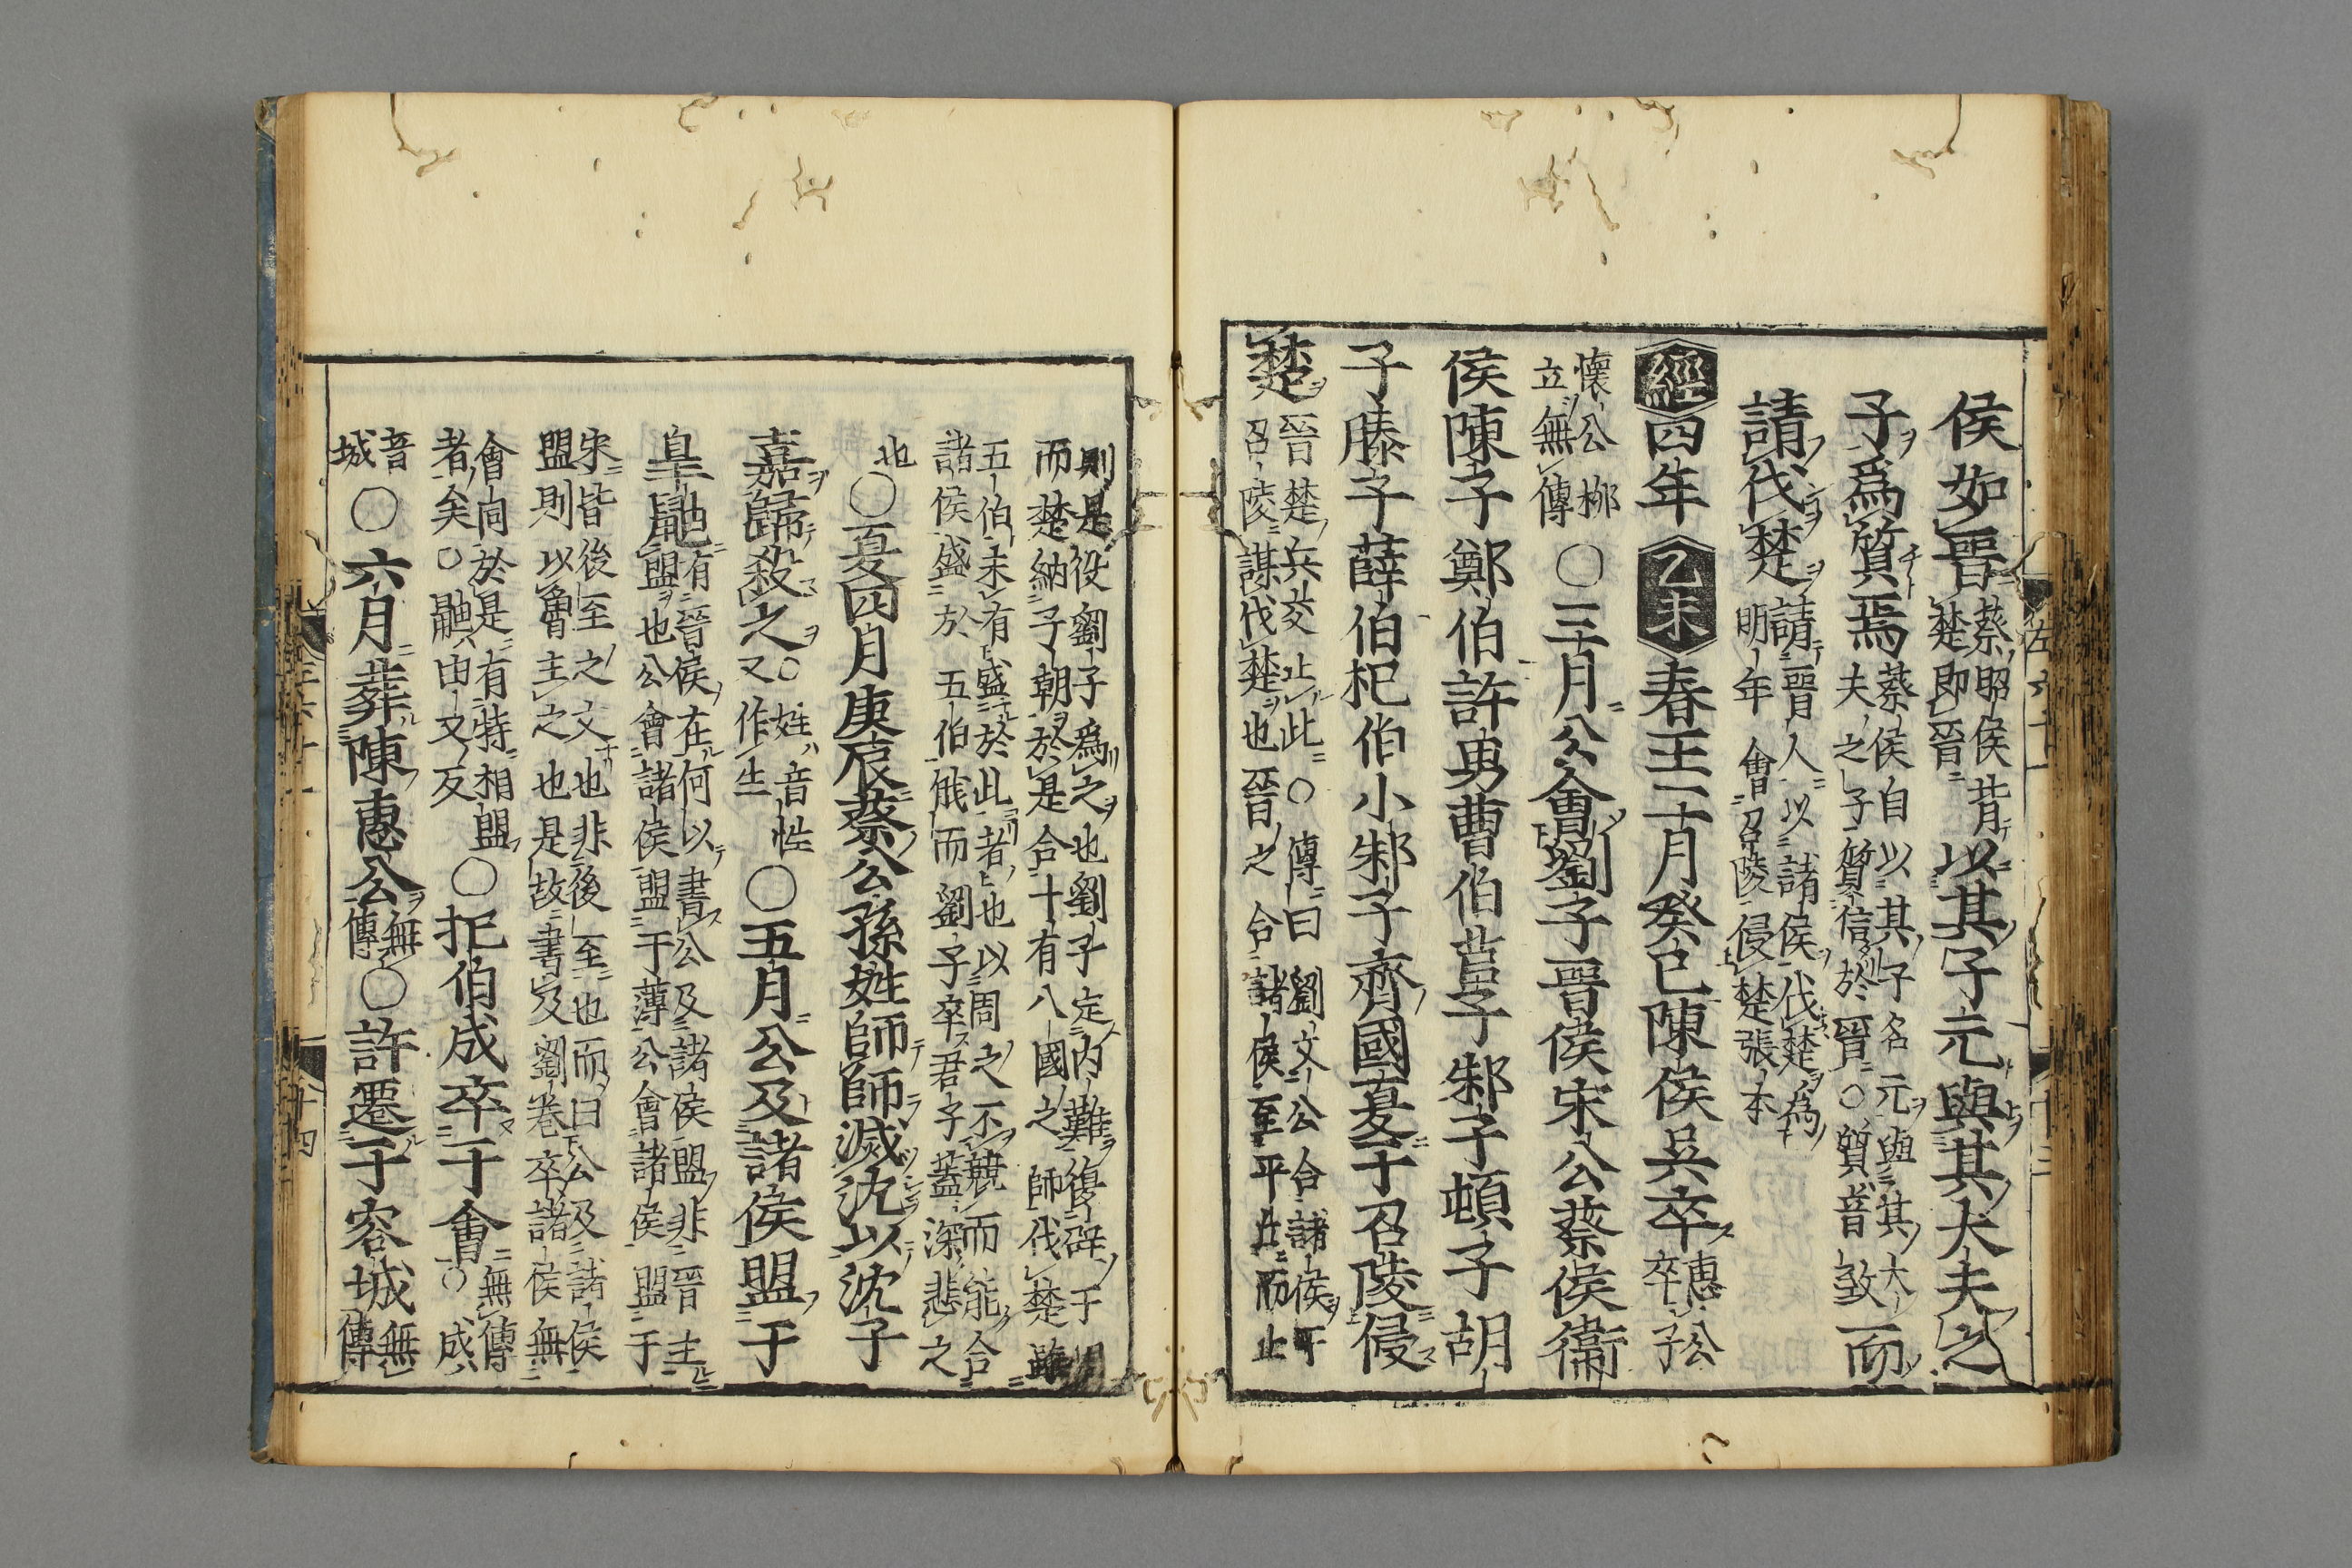 侯如晉蔡昭侯背楚即晉以其子元與其大夫之
子爲質焉蔡侯自以其子名元與其大夫之子質信於晉○質音致而
請伐楚請晉人以諸侯伐楚爲明年會召陵侵楚張本
經四年乙未春王二月癸巳陳侯吳卒惠公卒子
懷公柳立無傳○三月公會劉子晉侯宋公蔡侯衞
侯陳子鄭伯許男曹伯莒子邾子頓子胡
子滕子薛伯杞伯小邾子齊國夏于召陵侵
楚晉楚兵交止此○傳曰劉文公合諸侯于召陵謀伐楚也晉之合諸侯至平丘而止
則是役劉子爲之也劉子定内難復辟于明而楚納子朝於是合十有八國之師伐楚雖
五伯未有盛於此者也以周之不競而能合諸侯盛於五伯俄而劉子卒君子蓋深悲之
也○夏四月庚辰蔡公孫姓師師滅沈以沈子
嘉歸殺之○姓音性又作生○五月公及諸侯盟于
皐鼬有晉侯在何以書公及諸侯盟非晉主盟也公會諸侯盟于薄公會諸侯盟于
宋皆後至之文也非後至也而曰公及諸侯盟則以魯主之也是故書及劉卷卒諸侯無
會同於是有特相盟者矣○鼬由又反○杞伯成卒于會無傳○成
音城○六月葬陳惠公無傳○許遷于容城無傳